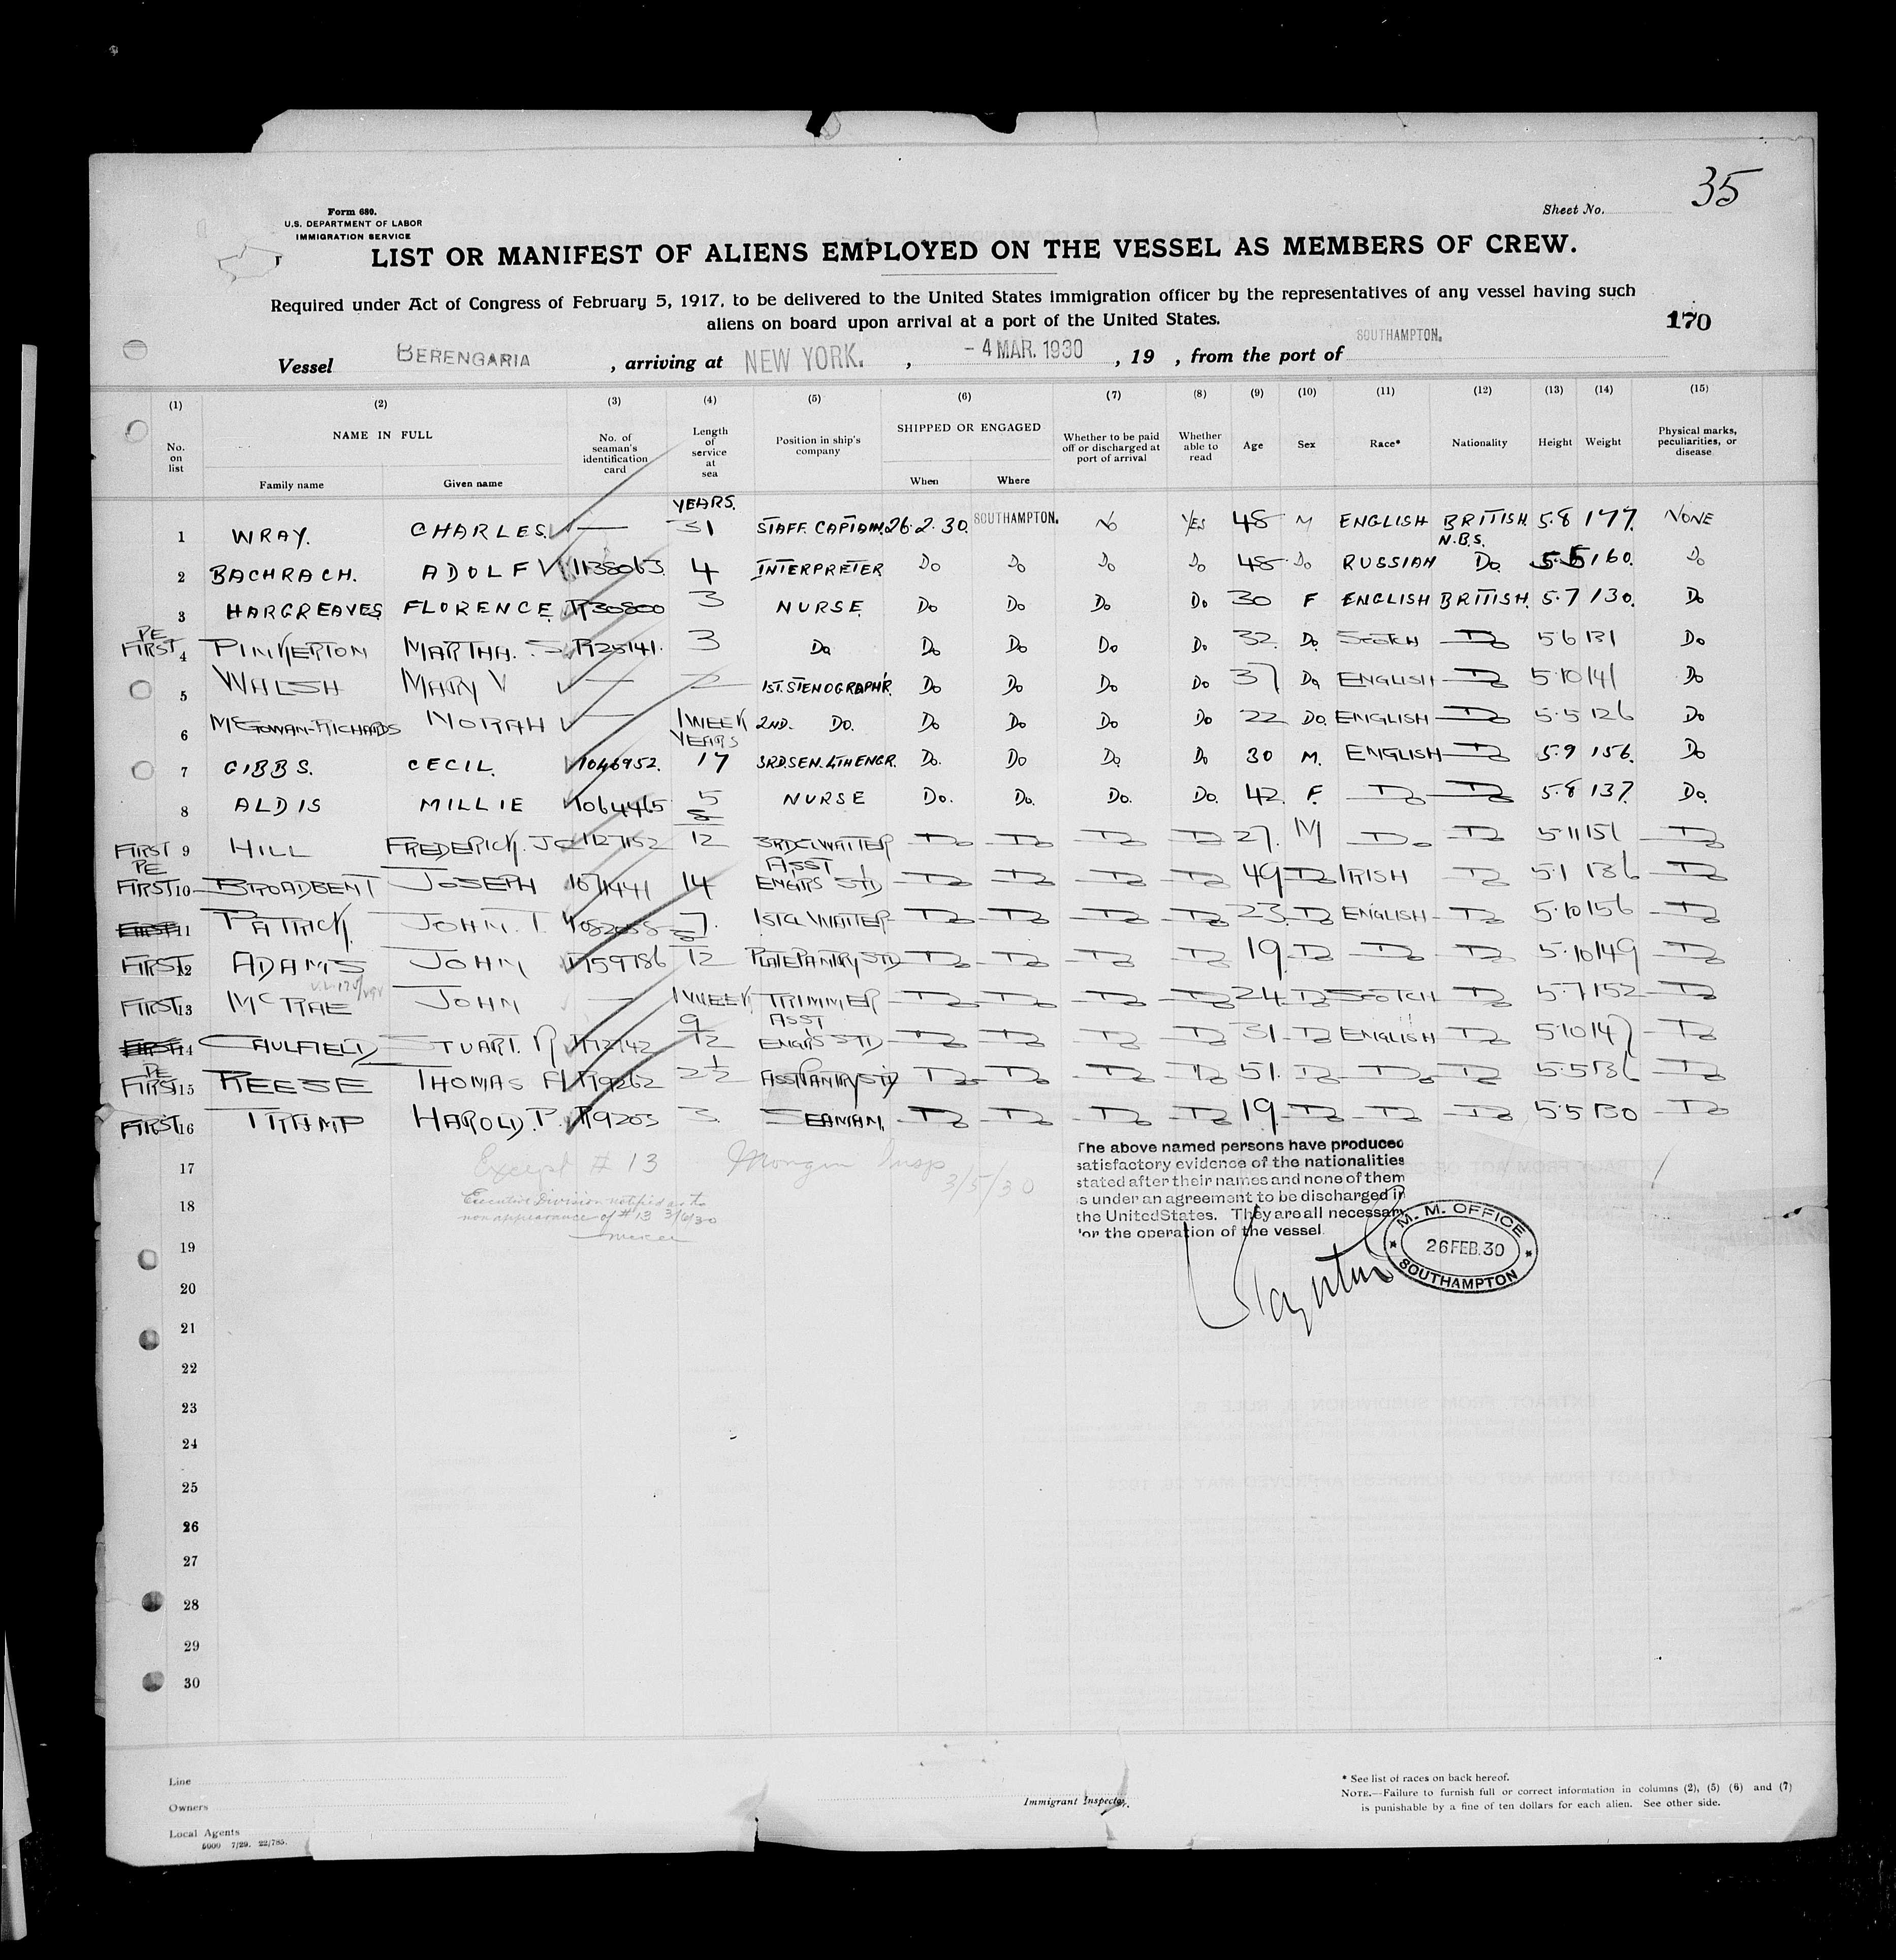 35
Form 680.
U.S. DEPARTMENT OF LABOR
IMMIGRATION SERVICE
Sheet No.
LIST OR MANIFEST OF ALIENS EMPLOYED ON THE VESSEL AS MEMBERS OF CREW.
Required under Act of Congress of February 5, 1917, to be delivered to the United States immigration officer by the representatives of any vessel having such
aliens on board upon arrival at a port of the United States.
170
Vessel BERENGARIA , arriving at NEW YORK. , - 4 MAR. 1930 , 19 , from the port of SOUTHAMPTON.
(1) (2) (3) (4) (5) (6) (7) (8) (9) (10) (11) (12) (13) (14) (15)
No. on list NAME IN FULL Family name Given name No. of seaman's identification card Length of service at sea Position in ship's company SHIPPED OR ENGAGED When Where Whether to be paid off or discharged at port of arrival Whether able to read Age Sex Race* Nationality Height Weight Physical marks, peculiarities, or disease
YEARS.
1 WRAY. CHARLES. — 31 STAFF. CAPTAIN. 26.2.30. SOUTHAMPTON. No YES 48 M ENGLISH BRITISH. 5.8 177. NONE
N.B.S.
2 BACHRACH. ADOLF 1138063. 4 INTERPRETER Do Do Do Do 48 Do RUSSIAN Do 5.5 160. Do
3 HARGREAVES FLORENCE R30800 3 NURSE. Do Do Do Do 30 F ENGLISH BRITISH. 5.7 130. Do
PE
FIRST 4 PINKERTON MARTHA. S R25141. 3 Do Do Do Do Do 32. Do SCOTCH Do 5.6 131 Do
5 WALSH MARY V — 2 1ST. STENOGRAPH'R. Do Do Do Do 37 Do ENGLISH Do 5.10 141 Do
6 McGOWAN-RICHARDS NORAH — 1 WEEK 2ND. DO. Do Do Do Do 22 Do. ENGLISH Do 5.5 126 Do
YEARS
7 GIBBS. CECIL. 1046952. 17 3RD.SEN.4TH ENGR. Do. Do Do Do 30 M. ENGLISH Do 5.9 156. Do
8 ALDIS MILLIE 1064465 5 NURSE Do. Do. Do. Do. 42. F. Do Do 5.8 137. Do.
FIRST 9 HILL FREDERICK. J 1127152 8/12 3RD CL WAITER Do Do Do Do 27. M Do Do 5.11 151 Do
PE
FIRST 10 BROADBENT JOSEPH 1071441 14 ASST ENGRS STD Do Do Do Do 49 Do IRISH Do 5.1 136 Do
FIRST 11 PATRICK. JOHN. T. 7. 1ST CL WAITER Do Do Do Do 23. Do ENGLISH Do 5.10 156 Do
FIRST 12 ADAMS JOHN R159786 8/12 PLATE PANTRY STD Do Do Do Do 19. Do Do Do 5.10 149 Do
FIRST 13 McRAE JOHN — 1 WEEK TRIMMER Do Do Do Do 24. Do SCOTCH Do 5.7 152 Do
FIRST 14 CAULFIELD STUART. R R112142 9/12 ASST ENGRS STD Do Do Do Do 31 Do ENGLISH Do 5.10 147 Do
PE
FIRST 15 REESE THOMAS H R19262 2½ ASST PANTRY STD Do Do Do Do 51. Do Do Do 5.5 136 Do
FIRST 16 TRAMP HAROLD. P. R19203 3 SEAMAN. Do Do Do Do 19. Do Do Do 5.5 130 Do
17 Except # 13 Insp 3/5/30
18 Executive Division notified as to
nonappearance of #13 3/6/30
The above named persons have produced
satisfactory evidence of the nationalities
stated after their names and none of them
is under an agreement to be discharged in
the United States. They are all necessary
for the operation of the vessel.
M. M. OFFICE
26 FEB. 30
SOUTHAMPTON
19
20
21
22
23
24
25
26
27
28
29
30
Line
Owners
Local Agents
5000 7/29. 22/785.
Immigrant Inspector.
* See list of races on back hereof.
NOTE.—Failure to furnish full or correct information in columns (2), (5) (6) and (7)
is punishable by a fine of ten dollars for each alien. See other side.